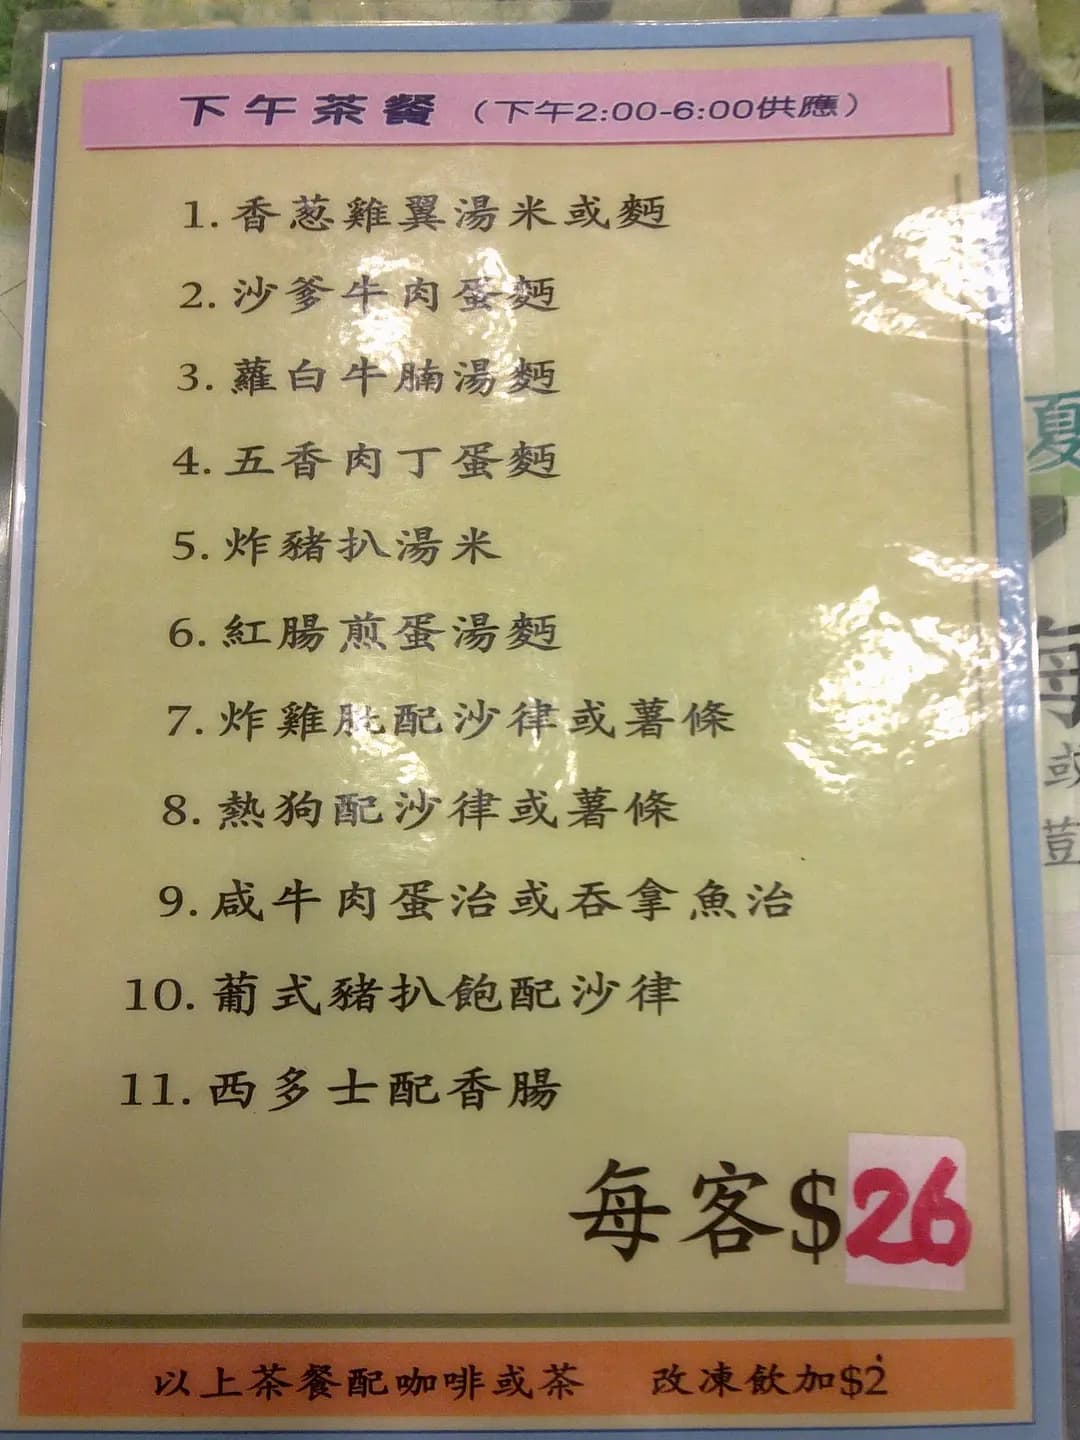 下午茶餐（下午2:00-6:00供應）
1. 香葱雞翼湯米或麪
2. 沙爹牛肉蛋麪
3. 蘿白牛腩湯麪
4. 五香肉丁蛋麪
5. 炸豬扒湯米
6. 紅腸煎蛋湯麪
7. 炸雞肶配沙律或薯條
8. 熱狗配沙律或薯條
9. 咸牛肉蛋治或吞拿魚治
10. 葡式豬扒飽配沙律
11. 西多士配香腸
每客$26
以上茶餐配咖啡或茶 改凍飲加$2
夏
每
或
荳